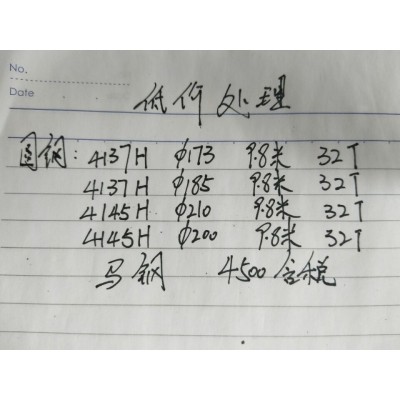 No.
Date
低价处理
圆钢: 4137H φ173 9.8米 32T
4137H φ185 9.8米 32T
4145H φ210 9.8米 32T
4145H φ200 9.8米 32T
马钢 4500含税